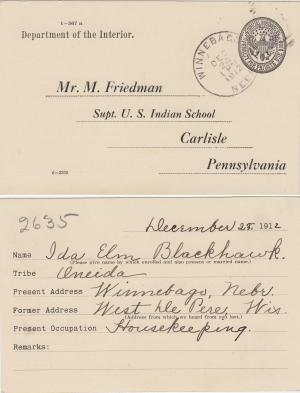 1-567 a
Department of the Interior.
WINNEBAGO
DEC
1912
NEB.
Mr. M. Friedman
Supt. U. S. Indian School
Carlisle
Pennsylvania
2635
December 28, 1912
Name Ida Elm Blackhawk.
(Please give name by which enrolled and also present or married name.)
Tribe Oneida
Present Address Winnebago, Nebr.
Former Address West De Pere, Wis.
(Address from which we heard from you last.)
Present Occupation Housekeeping.
Remarks: